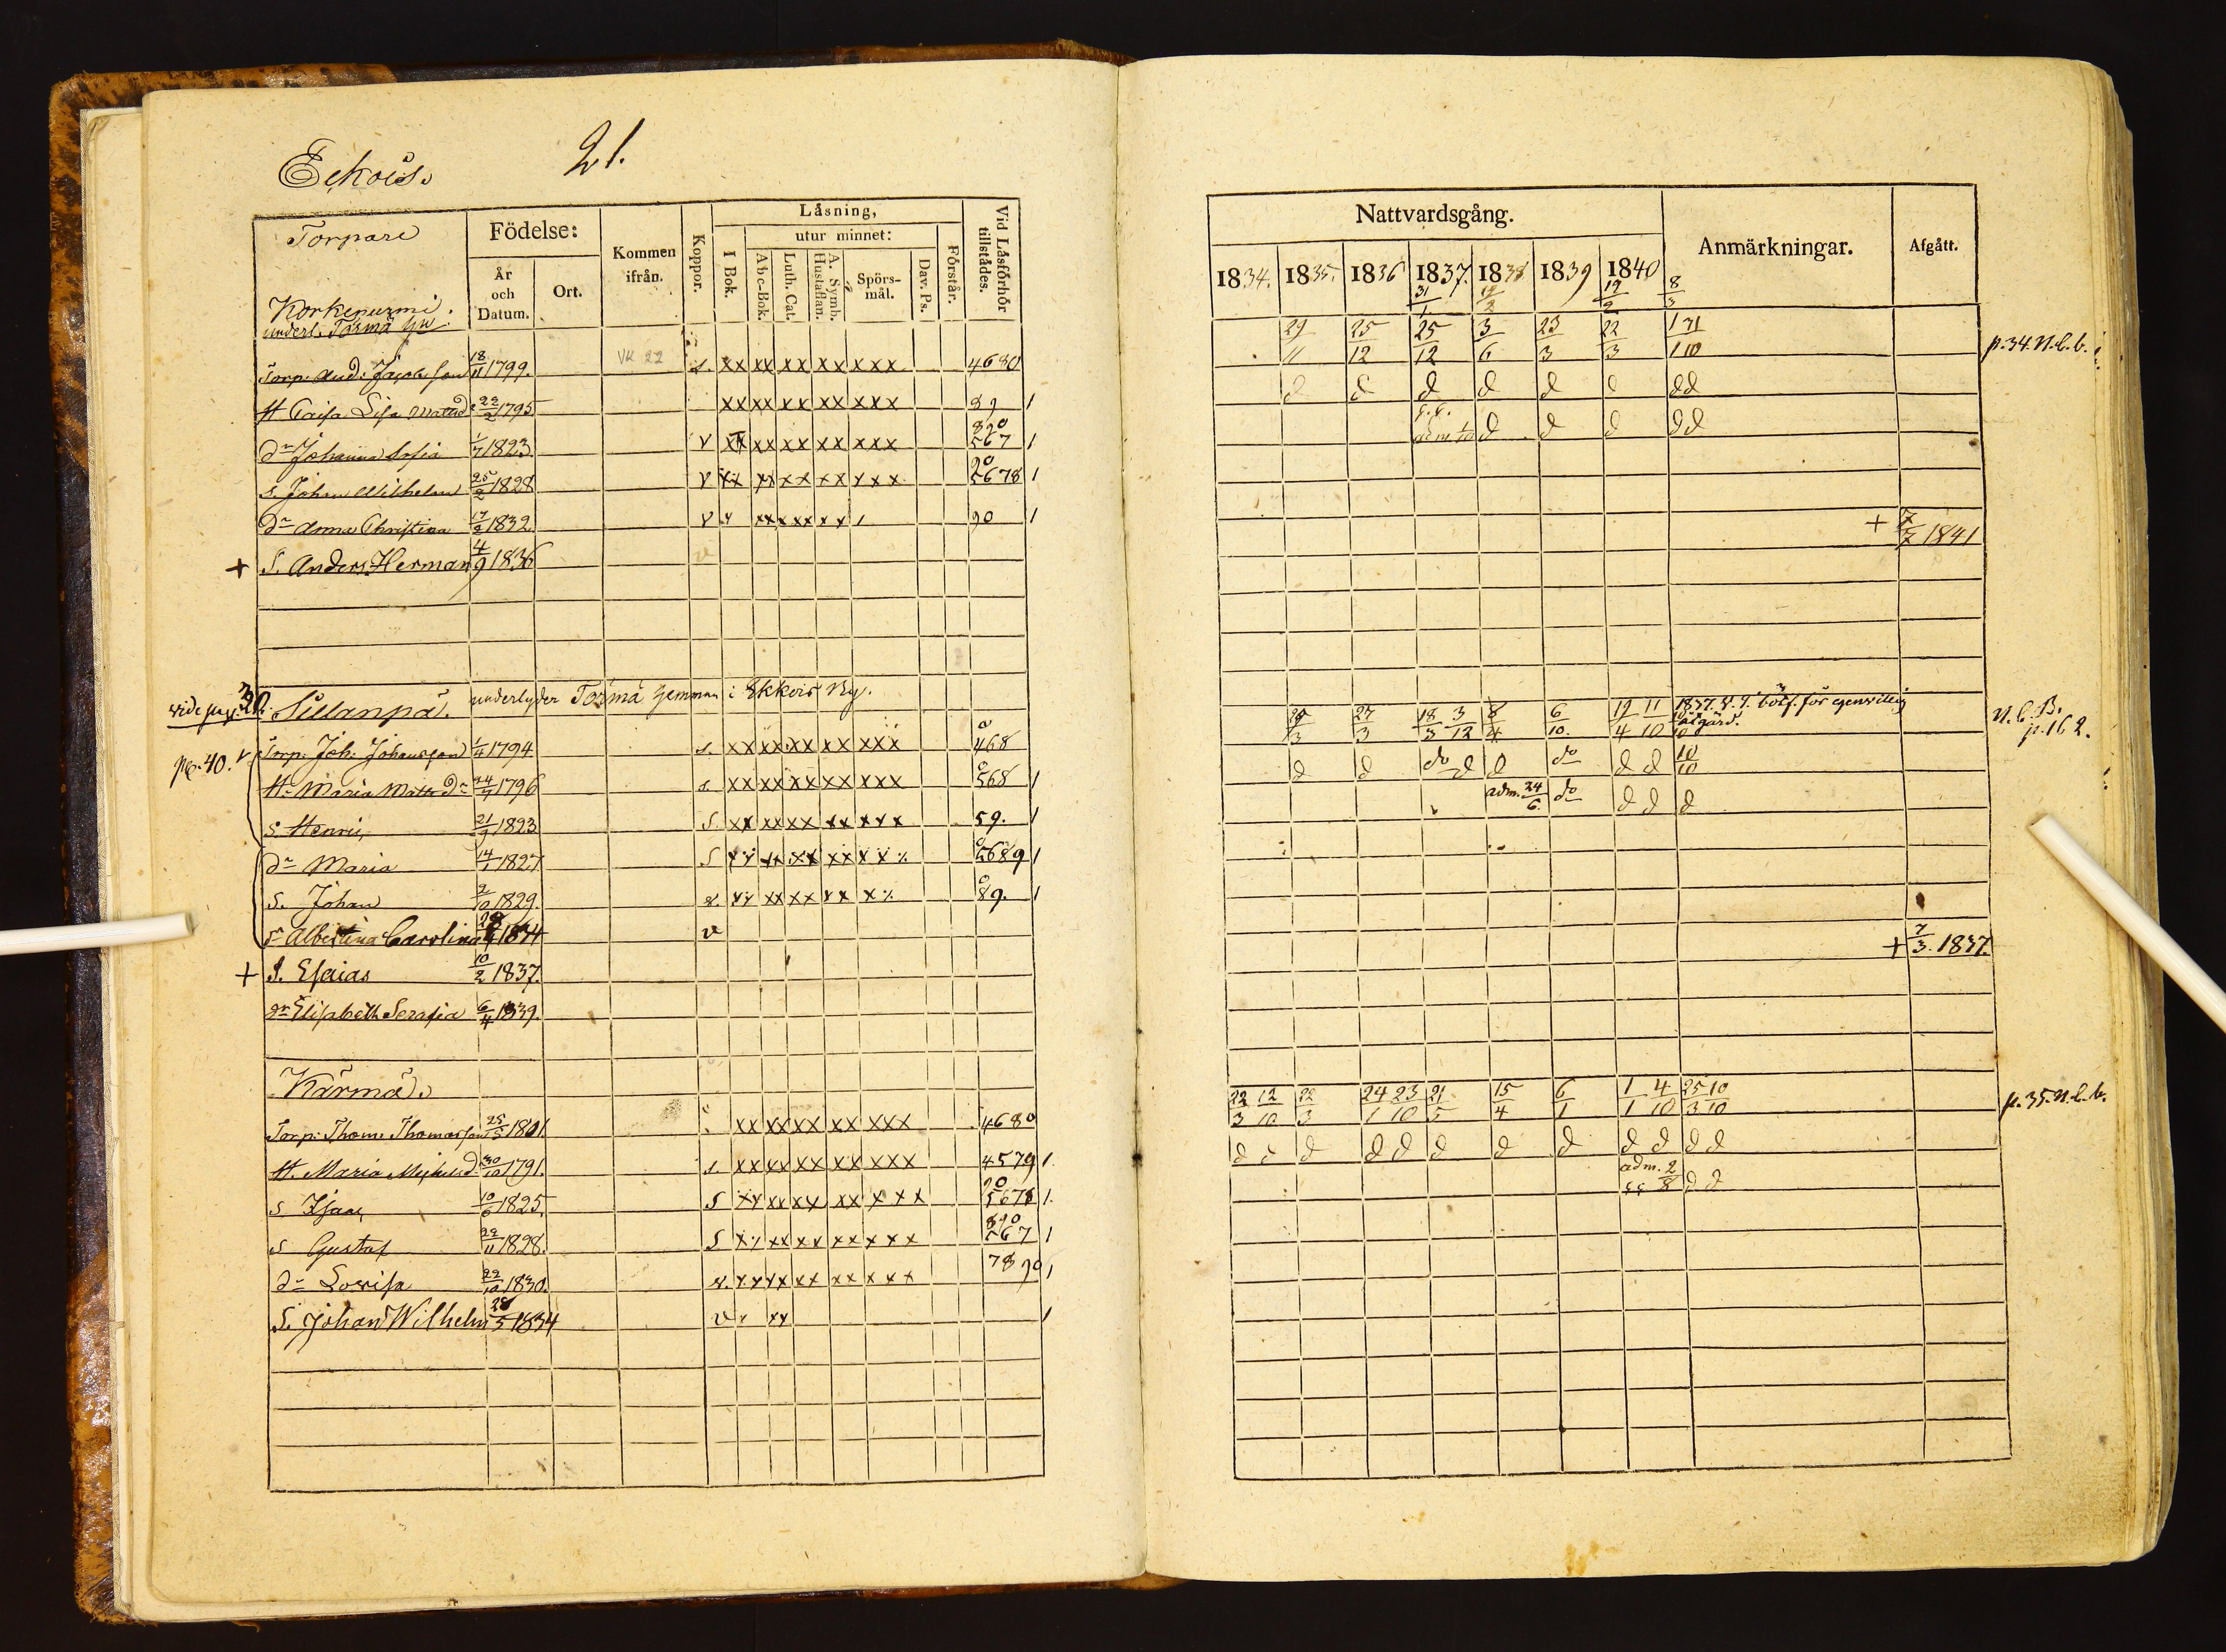 Eckois. 21.
Torpare
Födelse:
År och Datum.
Ort.
Kommen ifrån.
Koppor.
Låsning,
I Bok.
utur minnet:
Abc-Bok.
Luth. Cat.
A. Symb. Hustaflan.
Spörs-mål.
Dav. Ps.
Förstår.
Vid Låsförhör tillstädes.
Korkenurmi.
underl. Törmä
Torp. And. Jacobsson 18/11 1799. VK 22 s. xx xx xx xx xxx 4680
H. Caisa Lisa Matsd 22/2 1795 xx xx xx xx xxx 89 1
Dr Johanna Sofia 1/7 1823 v xx xx xx xx xxx 890 567 1
S. Johan Wilhelm 25/2 1828 v xx xx xx xx xxx 90 5678 1
Dr Anna Christina 17/2 1832. v 90 1
+ S. Anders Herman 4/9 1836 v
vide pag. 20. Sillanpä. underlyder Tormä hemman i Ekkois By.
pg. 40. v Torp. Joh. Johansson 1/4 1794 s. xx xx xx xx xxx 0 468
Hu Maria Mats Dr 24/7 1796 s. xx xx xx xx xxx 0 568 1
S. Henric 21/9 1823 S. xx xx xx xx xxx 59. 1
Dr Maria 14/1 1827 S 0 5689 1
S. Johan 2/10 1829 0 89. 1
Dr Albertina Carolina 1834 v
+ S. Esaias 10/2 1837.
Dr Elisabeth Serafia 6/4 1839.
Kärmä.
Torp. Thom. Thomasson 25/5 1801 xx xx xx xx xxx 4680
H. Maria Michelsd. 30/10 1791. s. xx xx xx xx xxx 4579 1.
S Isaac 10/6 1825. S xx xx xx xx xxx 90 5678 1.
S Gustaf 22/11 1828. S 890 567 1
Dr Lovisa 22/10 1830. 7890 1
S. Johan Wilhelm 28/5 1834 v 1
Nattvardsgång.
Anmärkningar.
Afgått.
1834. 1835. 1836 1837. 1838 1839 1840
31/1 12/2 8/3
29/11 25/12 25/12 3/6 23/3 22/3 p.34. N.C.b.
d d d d d d dd
d d d dd
+ 7/7 1841
27/3 18/3 3/12 8/4 6/10. 19/4 11/10 1837. för egenvillig N.C.B. p.162.
d d do d d do d d 10/10
adm. 24/6 do d d d
+ 7/3. 1837.
22/3 12/10 22/3 24/1 23/10 21/5 15/4 6/1 1/1 4/10 25/3 10/10 p.35. N.C.b.
d d d d d d d d d d d d
adm. 2/8 d d